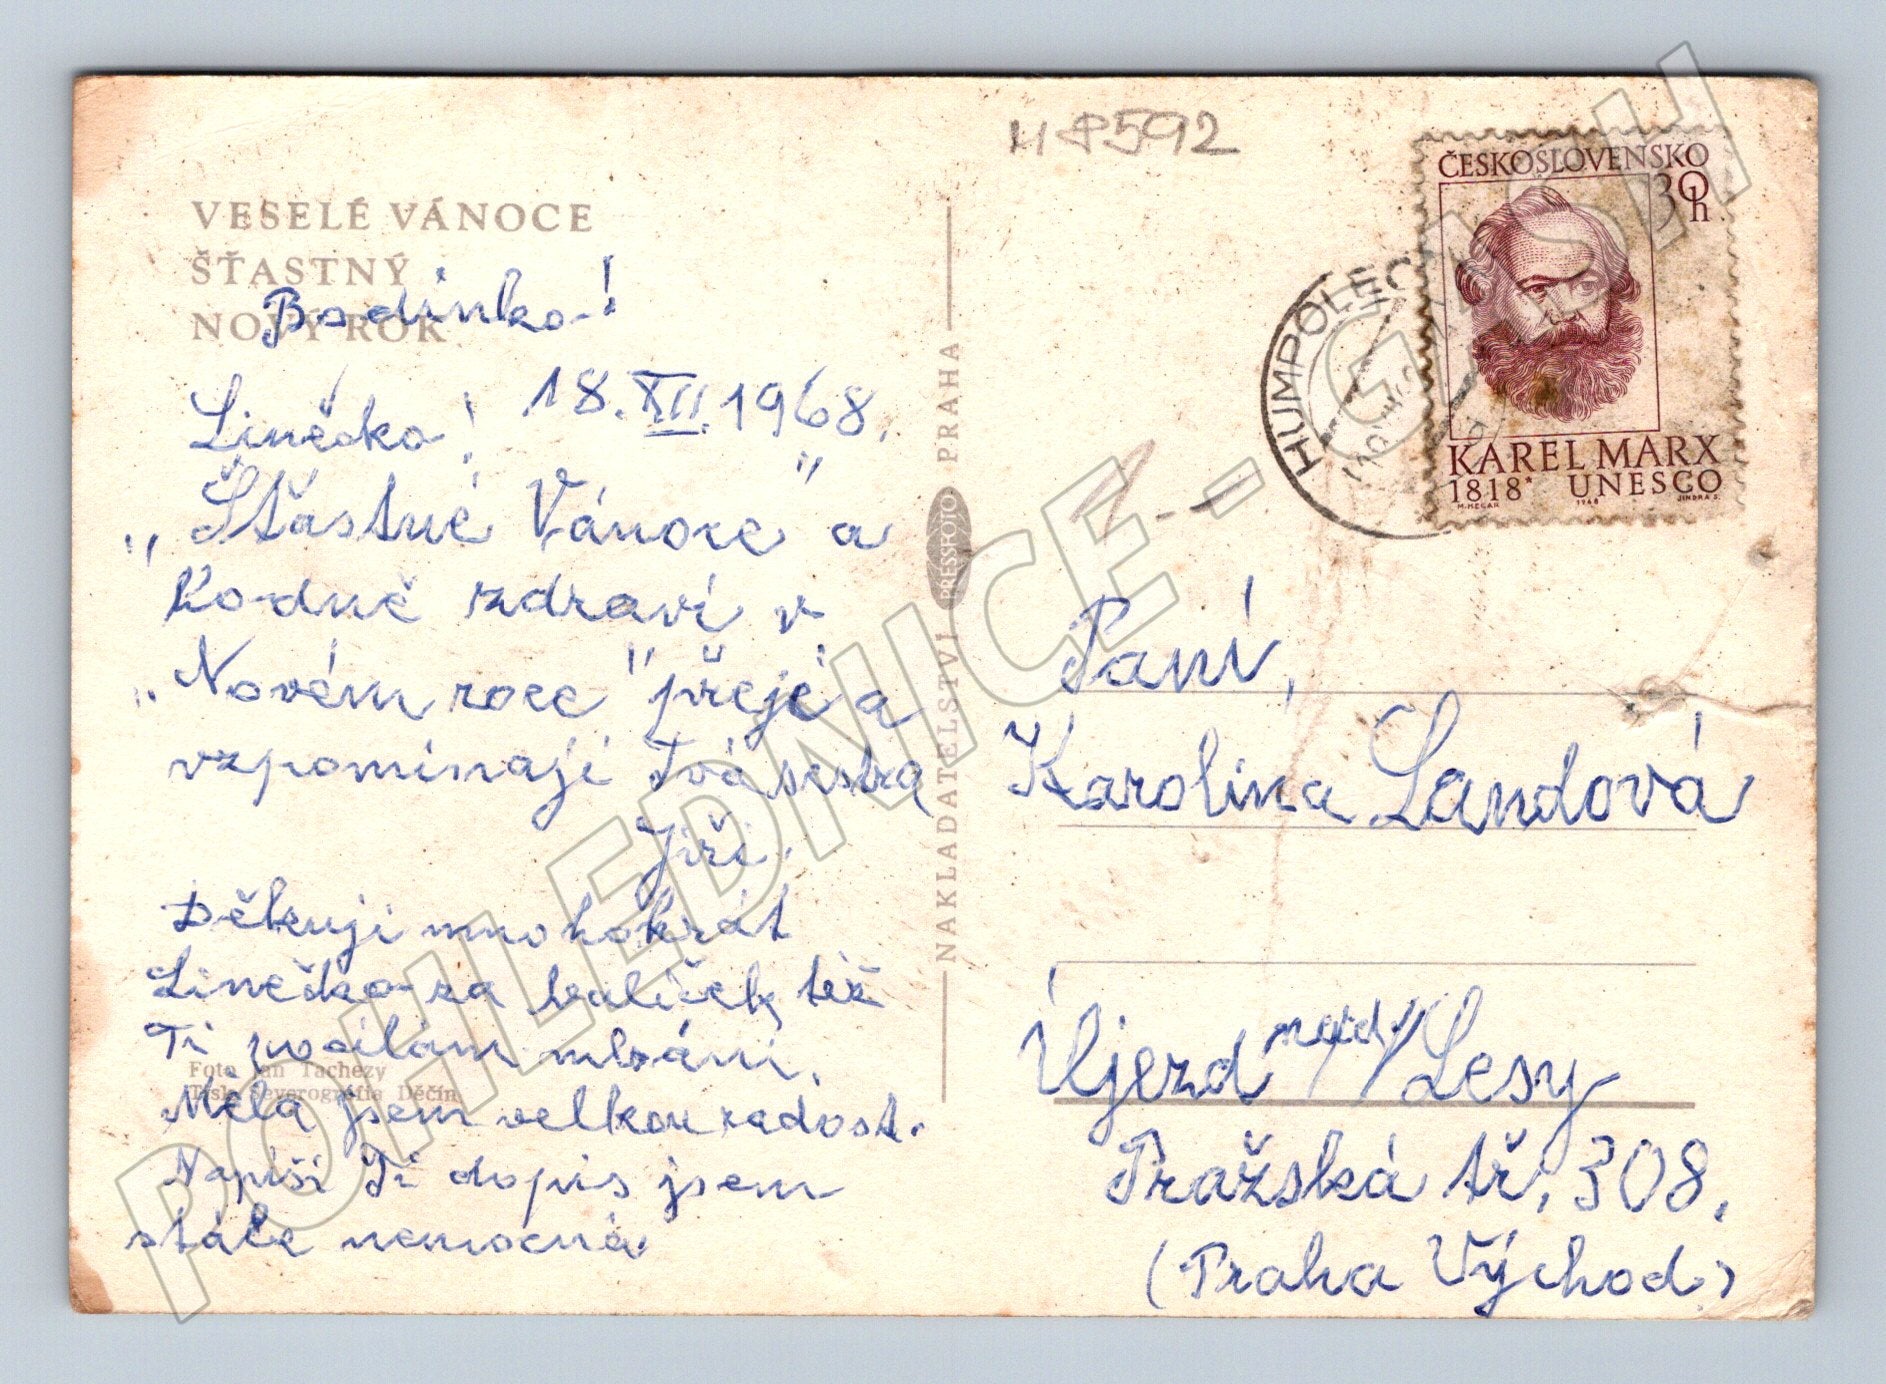 HP592
VESELÉ VÁNOCE
ŠŤASTNÝ
NOVÝ ROK
Bodinko!
Linečko! 18.XII.1968.
„Šťastné Vánoce" a
hodně zdraví v
„Novém roce" přeje a
vzpomínají Tvá sestra
Jiři.
Děkuji mnohokrát
Linečko za balíček, též
Ti posílám
Měla jsem velkou radost.
Napíši Ti dopis jsem
stále nemocná.
Foto Jan Tachezy
Tisk Severografia Děčín
NAKLADATELSTVÍ PRESSFOTO PRAHA
ČESKOSLOVENSKO
30h
KAREL MARX
1818* UNESCO
M.HEGAR 1968 JINDRA S.
HUMPOLEC
Paní,
Karolina Landová
Újezd nad/Lesy
Pražská tř. 308.
(Praha Východ.)
POHLEDNICE - GASH